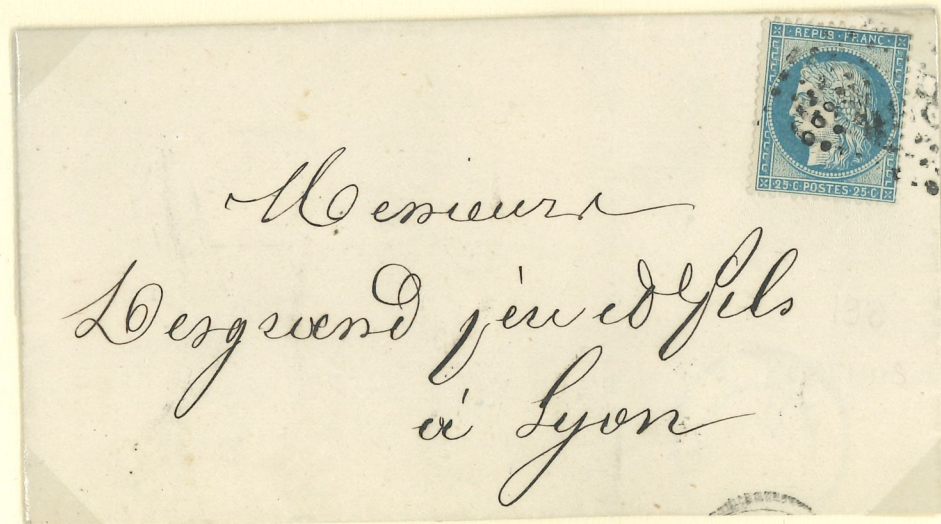 REPUB · FRANC ·
· 25 · C · POSTES · 25 · C ·
Messieurs
Desgrand père et fils
à Lyon